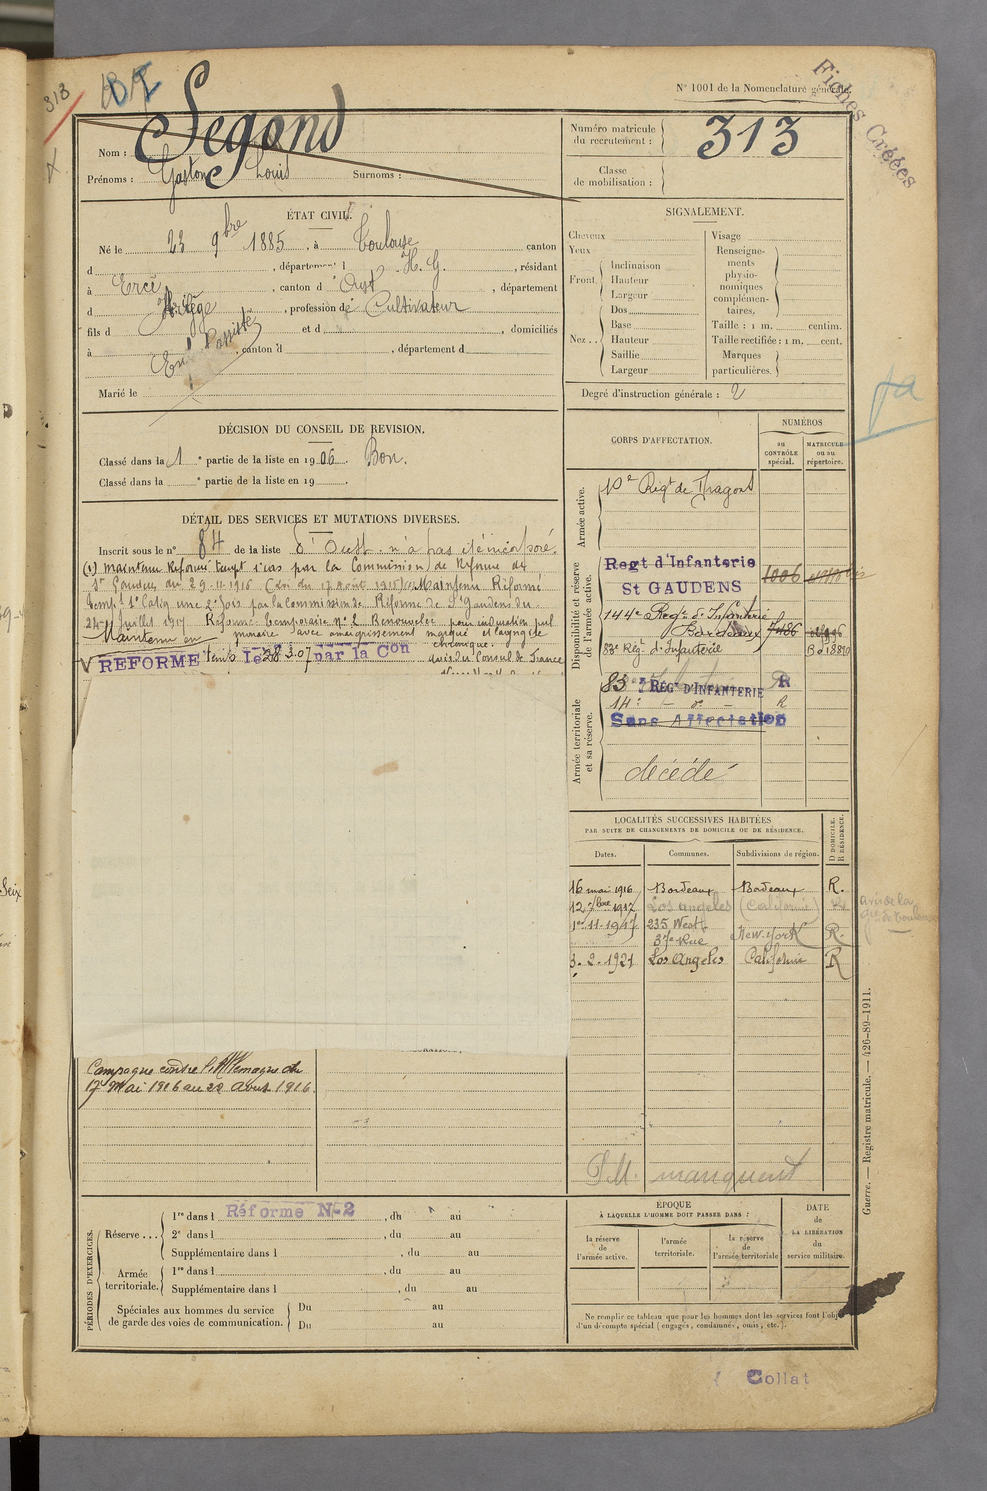 313
N° 1001 de la Nomenclature générale.
Fiches Créées
Nom : Segond
Prénoms : Gaston Louis Surnoms :
Numéro matricule du recrutement : 313
Classe de mobilisation :
ÉTAT CIVIL.
Né le 23 9bre 1885, à Toulouse canton
d , département d H. G. , résidant
à Ercé , canton d'Oust , département
d Ariège , profession de Cultivateur
fils d et d , domiciliés
à , canton d , département d
Marié le
SIGNALEMENT.
Cheveux
Yeux
Front
Inclinaison
Hauteur
Largeur
Nez
Dos
Base
Hauteur
Saillie
Largeur
Visage
Renseignements physionomiques complémentaires,
Taille : 1 m. centim.
Taille rectifiée : 1 m. cent.
Marques particulières.
Degré d'instruction générale : 2
DÉCISION DU CONSEIL DE REVISION.
Classé dans la 1e partie de la liste en 1906. Bon.
Classé dans la e partie de la liste en 19 .
DÉTAIL DES SERVICES ET MUTATIONS DIVERSES.
Inscrit sous le n° 84 de la liste d'Oust. n'a pas été incorporé.
(1) Maintenu Réformé tempre par la Commission de Réforme de
St Gaudens du 29-11-1916 Maintenu Réformé
temp. une 2e fois par la Commission de Réforme de St Gaudens du
24 Juillet 1917 Réforme temporaire n° 2 Renouvelée pour induration pul
Maintenu en monaire avec amaigrissement marqué et laryngite
chronique.
REFORMÉ temp Le 28 3.07 par la Con
avis du Consul de France
CORPS D'AFFECTATION.
NUMÉROS
au CONTRÔLE spécial.
MATRICULE ou au répertoire.
Armée active.
10e Régt de Dragons
Disponibilité et réserve de l'armée active.
Regt d'Infanterie
St GAUDENS
1006
144e Regt d'Infanterie
Bordeaux 7486
83e Régt d'Infanterie
Armée territoriale et sa réserve.
83e RÉGt D'INFANTERIE R
14e - do - R
Sans Affectation
décédé
LOCALITÉS SUCCESSIVES HABITÉES
PAR SUITE DE CHANGEMENTS DE DOMICILE OU DE RÉSIDENCE.
Dates. Communes. Subdivisions de région. D DOMICILE. R RÉSIDENCE.
16 mai 1916 Bordeaux Bordeaux R.
12 7bre 1917 Los Angeles (Californie) R
1er 11-1917 235 West 37e Rue New-York R.
3-2-1921 Los Angeles Californie R
Campagne contre l'Allemagne du
17 Mai 1916 au 22 Aout 1916.
P.M. manquent
PÉRIODES D'EXERCICES.
Réserve ...
1re dans l Réforme N° 2 , du au
2e dans l , du au
Supplémentaire dans l , du au
Armée territoriale.
1re dans l , du au
Supplémentaire dans l , du au
Spéciales aux hommes du service de garde des voies de communication.
Du au
Du au
ÉPOQUE
À LAQUELLE L'HOMME DOIT PASSER DANS :
la réserve de l'armée active.
l'armée territoriale.
la réserve de l'armée territoriale
DATE de LA LIBÉRATION du service militaire.
Ne remplir ce tableau que pour les hommes dont les services font l'objet
d'un décompte spécial (engagés, condamnés, omis, etc.).
Guerre. — Registre matricule. — 426-89-1911.
Collat